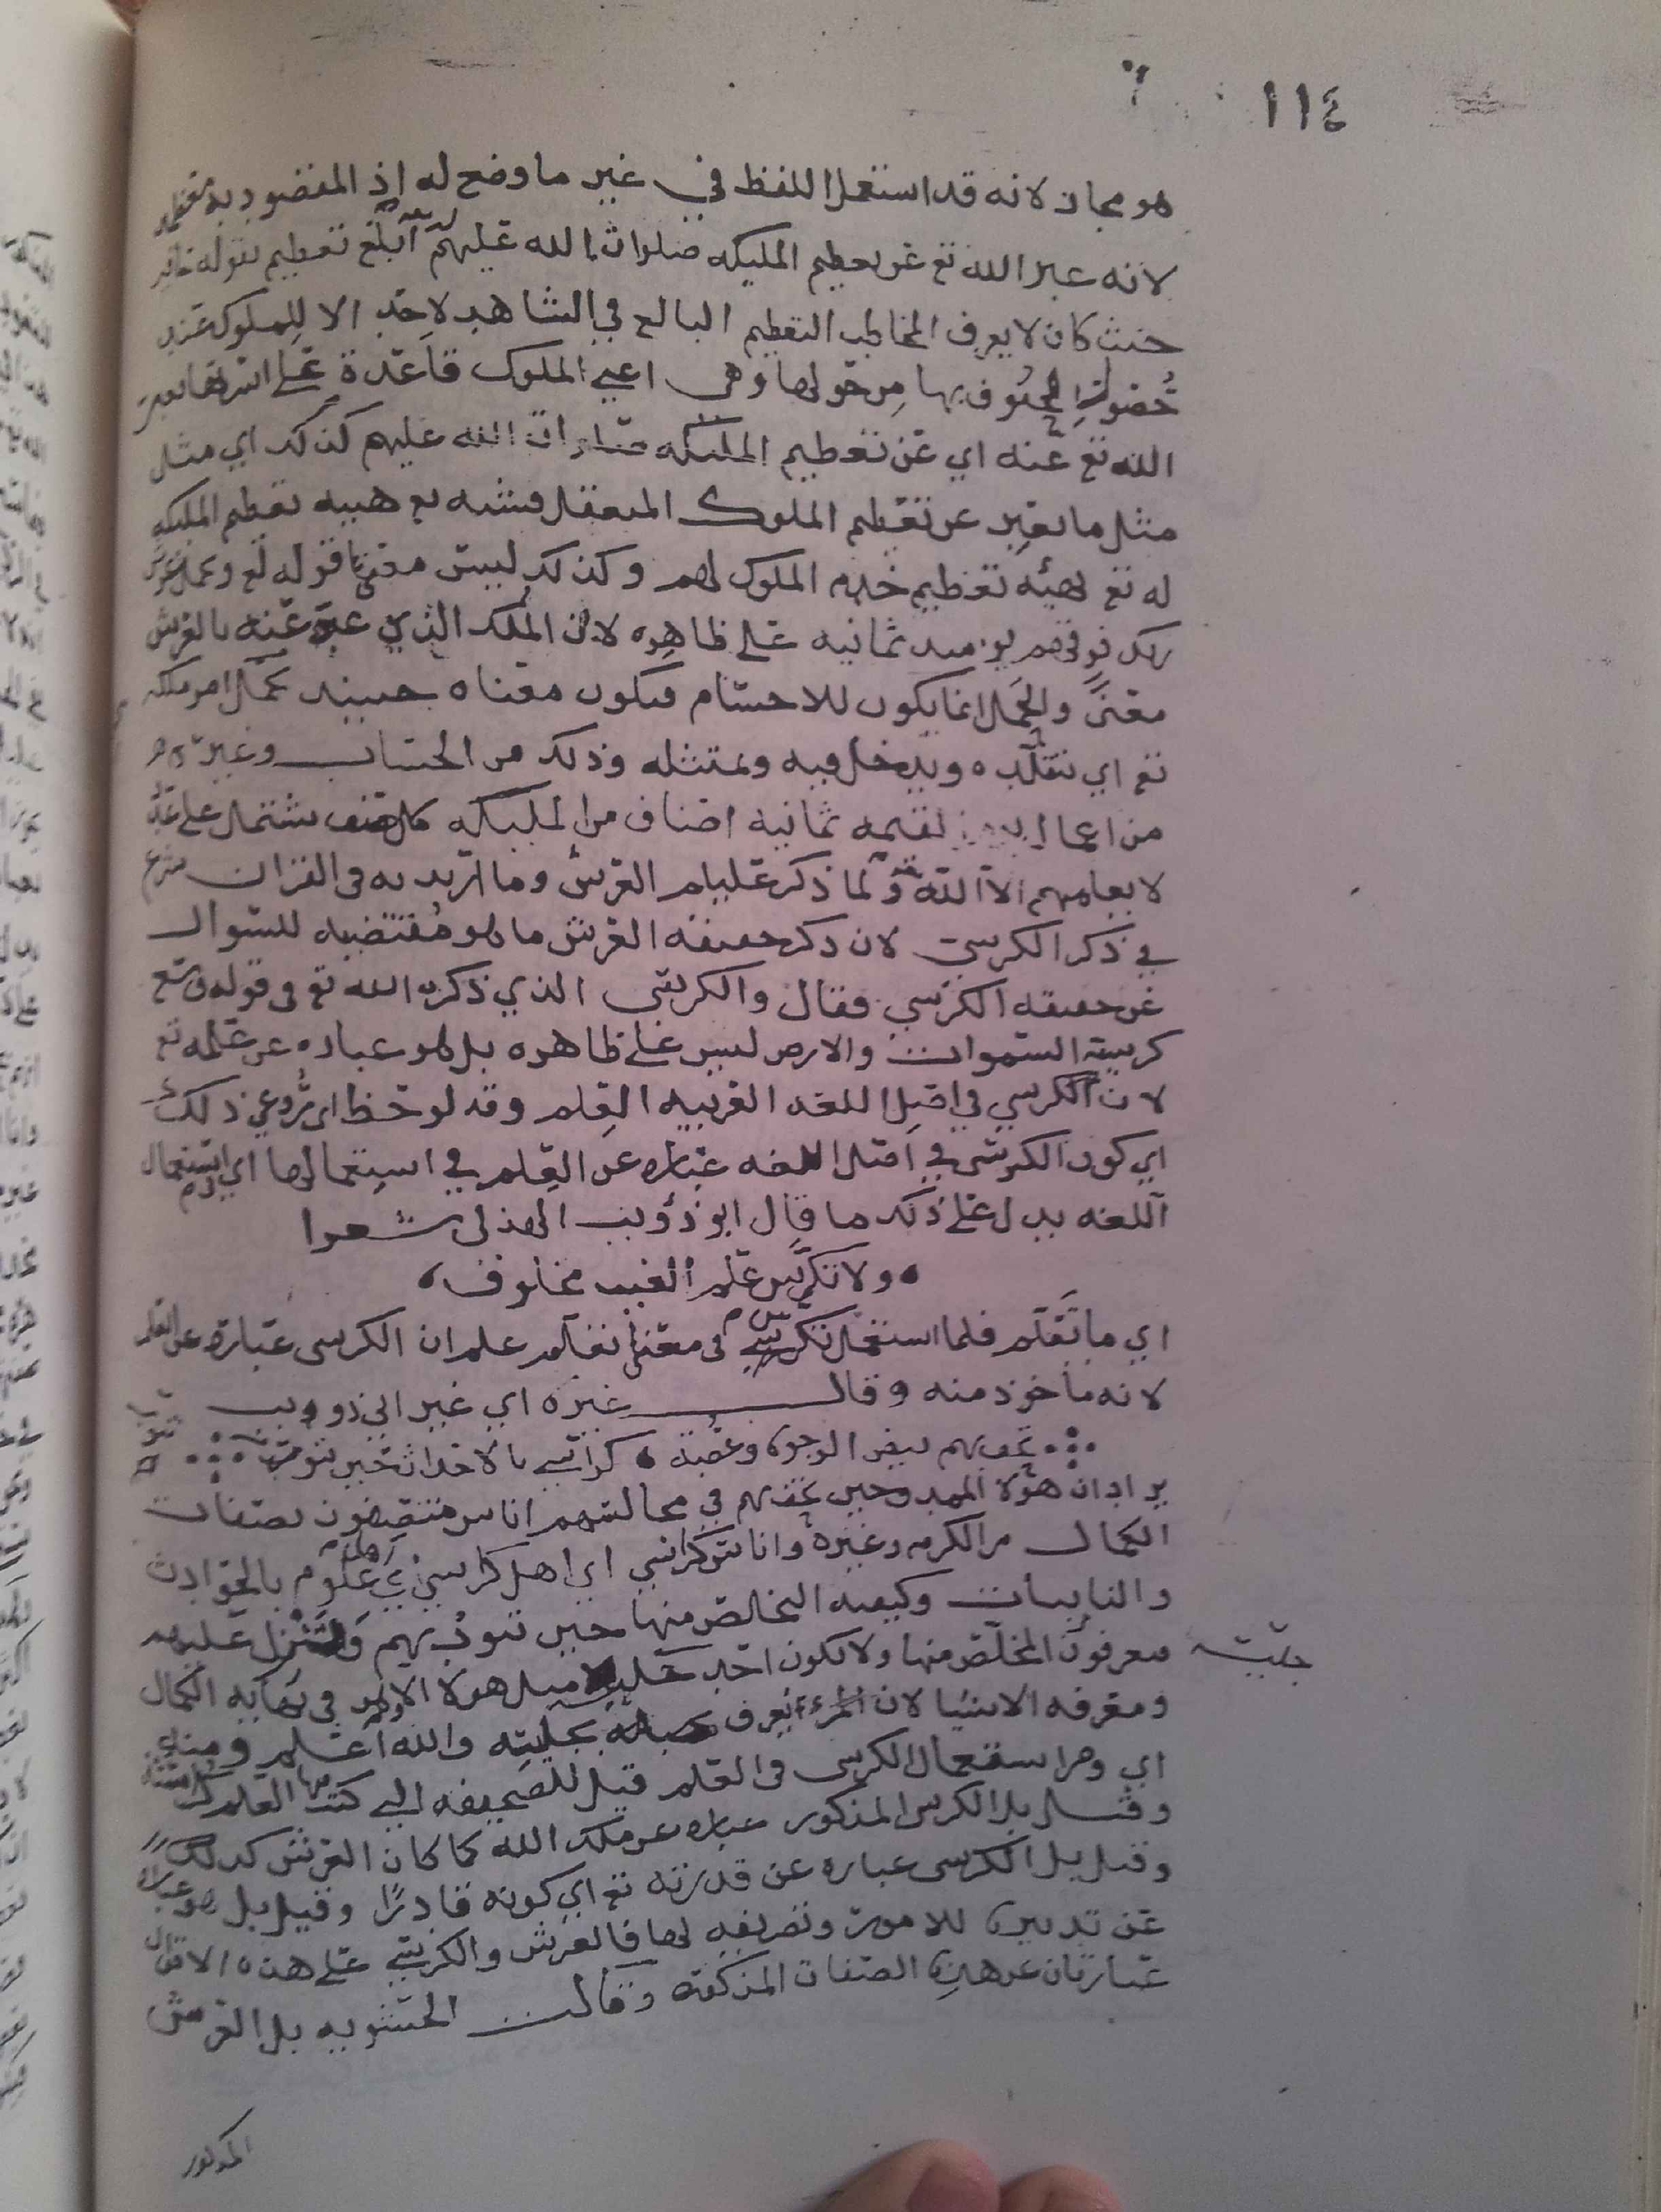 ١١٤
هو مجاز لانه قد استعمل اللفظ في غير ما وضع له اذ المقصود به
لانه عبر الله تع عن تعظيم المليكه صلوات الله عليهم ابلغ تعظيم بقوله
حيث كان لا يعرف المخاطب التعظيم البالغ في الشاهد لاحد الا للملوك عند
المحفوف بها من حولها وهي اعني الملوك قاعدة على اسرتها
الله تع عنه اي عن تعظيم المليكه صلوات الله عليهم كذلك اي مثل
مثل ما يعبر عن تعظيم الملوك تعظيم المليكه
له تع بهيئه تعظيم خدم الملوك لهم وكذلك ليس قوله تع ويحمل عرش
ربك فوقهم يوميذ ثمانيه على ظاهره لان الملك الذي عبر عنه بالعرش
معنى والحمل انما يكون للاجسام فيكون معناه حينيذ يحمل امر ملكه
تع اي يتقلده ويدخل فيه ويمتثله وذلك من الحساب وغيره
من اعمال القيمه ثمانيه اصناف من المليكه كل صنف يشتمل على
لا يعلمهم الا الله ولما ذكر عليلم العرش وما اريد به في القران شرع
في ذكر الكرسي لان ذكر حقيقه العرش ما هو مقتضيه للسوال
عن حقيقه الكرسي فقال والكرسي الذي ذكره الله تع في قوله وسع
كرسيه السموات والارض ليس على ظاهره بل هو عباره عن علمه تع
لان الكرسي في اصل اللغه العربيه العلم وقد لوحظ اي رُوعي ذلك
اي كون الكرسي في اصل اللغه عباره عن العلم في استعمالها اي استعمال
اللغه يدل على ذلك ما قال ابو ذؤيب الهذلي شعرا
ولا تكرس علم الغيب مخلوق
اي ما تعلم فلما استعمل تكرس في معنى تعلم علم ان الكرسي عباره عن العلم
لانه ماخوذ منه وقال غيره اي غير ابي ذويب
تحف بهم بيض الوجوه وعصبة كراسي بالاحداث حين تنوب
يراد ان هولا الممدوحين تحف بهم في مجالسهم اناس متصفون بصفات
الكمال من الكرم وغيره واناس كراسي اي اهل كراسي اي علوم بالحوادث
والنايبات وكيفيه التخلص منها حين تنوب بهم وتنزل عليهم
فيعرفون المخلص منها ولا يكون احد مثل هولا الا وهم في نهايه الكمال
جليسه
ومعرفه الاشيا لان المرء يعرف بجليسه والله اعلم ومنه
اي ومن استعمال الكرسي في العلم قيل للصحيفه التي كتب فيها العلم
وقيل بل الكرسي المذكور عباره عن ملك الله كما كان العرش كذلك
وقيل بل الكرسي عباره عن قدرته تع اي كونه قادرًا وقيل بل هو عباره
عن تدبيره للامور وتصريفه لها فالعرش والكرسي على هذه الاقوال
عبارتان عن هذه الصفات المذكوره وقالت الحشويه بل العرش
المذكور